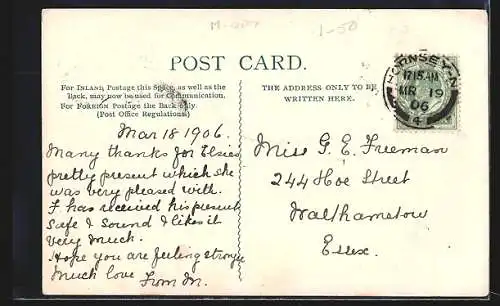 M-007
1-50
POST CARD.
For INLAND Postage this Space, as well as the
Back, may now be used for Communication.
For FOREIGN Postage the Back only.
(Post Office Regulations)
THE ADDRESS ONLY TO BE
WRITTEN HERE.
HORNSEY·N
12.15AM
MR 19
06
4
Mar 18 1906.
Many thanks for Elsies
pretty present which she
was very pleased with.
F has received his present
Safe & Sound & likes it
very much.
Hope you are feeling stronger
Much love from M.
Miss G. E. Freeman
244 Hoe Street
Walthamstow
Essex.